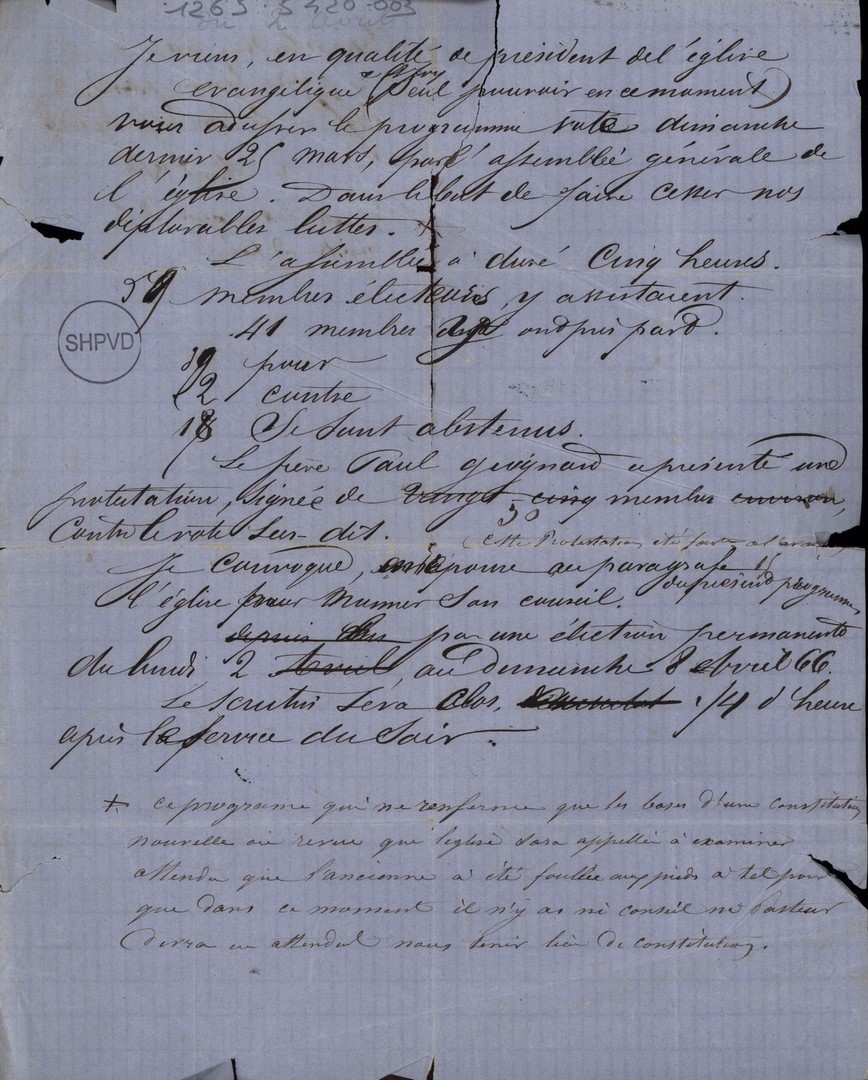 1263 S 420-003
Je viens, en qualité de président de l'église
evangilique (Seul pouvoir en ce moment)
vous adresser le programme voté dimanche
dernier 25 mars, par l'assemblée générale de
l'église. Dans le but de faire cesser nos
déplorables luttes. +
L'assemblée à duré Cinq heures.
59 membres électeurs, y assistaient.
41 membres ond pris pard.
39 pour
2 contre
18 Se Sont abstenus.
Le frère Paul a présenté une
protestation, signée de vingt-cinq membres environ,
50
Contre le vote Sus-dit.
(cette Protestation été faite
Je convoque, au paragrafe 15
du présend programme,
l'église pour Nommer Son conseil.
depuis par une élection permanente
du lundi 2 Avril, au dimanche 8 Avril 66.
Le Scrutin Sera Clos, 1/4 d'heure
après le Service du Soir.
+ ce programe qui ne renferme que les bases d'une constitution
nouvelle ou revue que l'eglise sera appellée à examiner
attendu que l'ancienne à été foulée aux pieds à tel point
que dans ce moment il n'y as ni conseil ni Pasteur
devra en attendand nous tenir lieu de constitution.
SHPVD